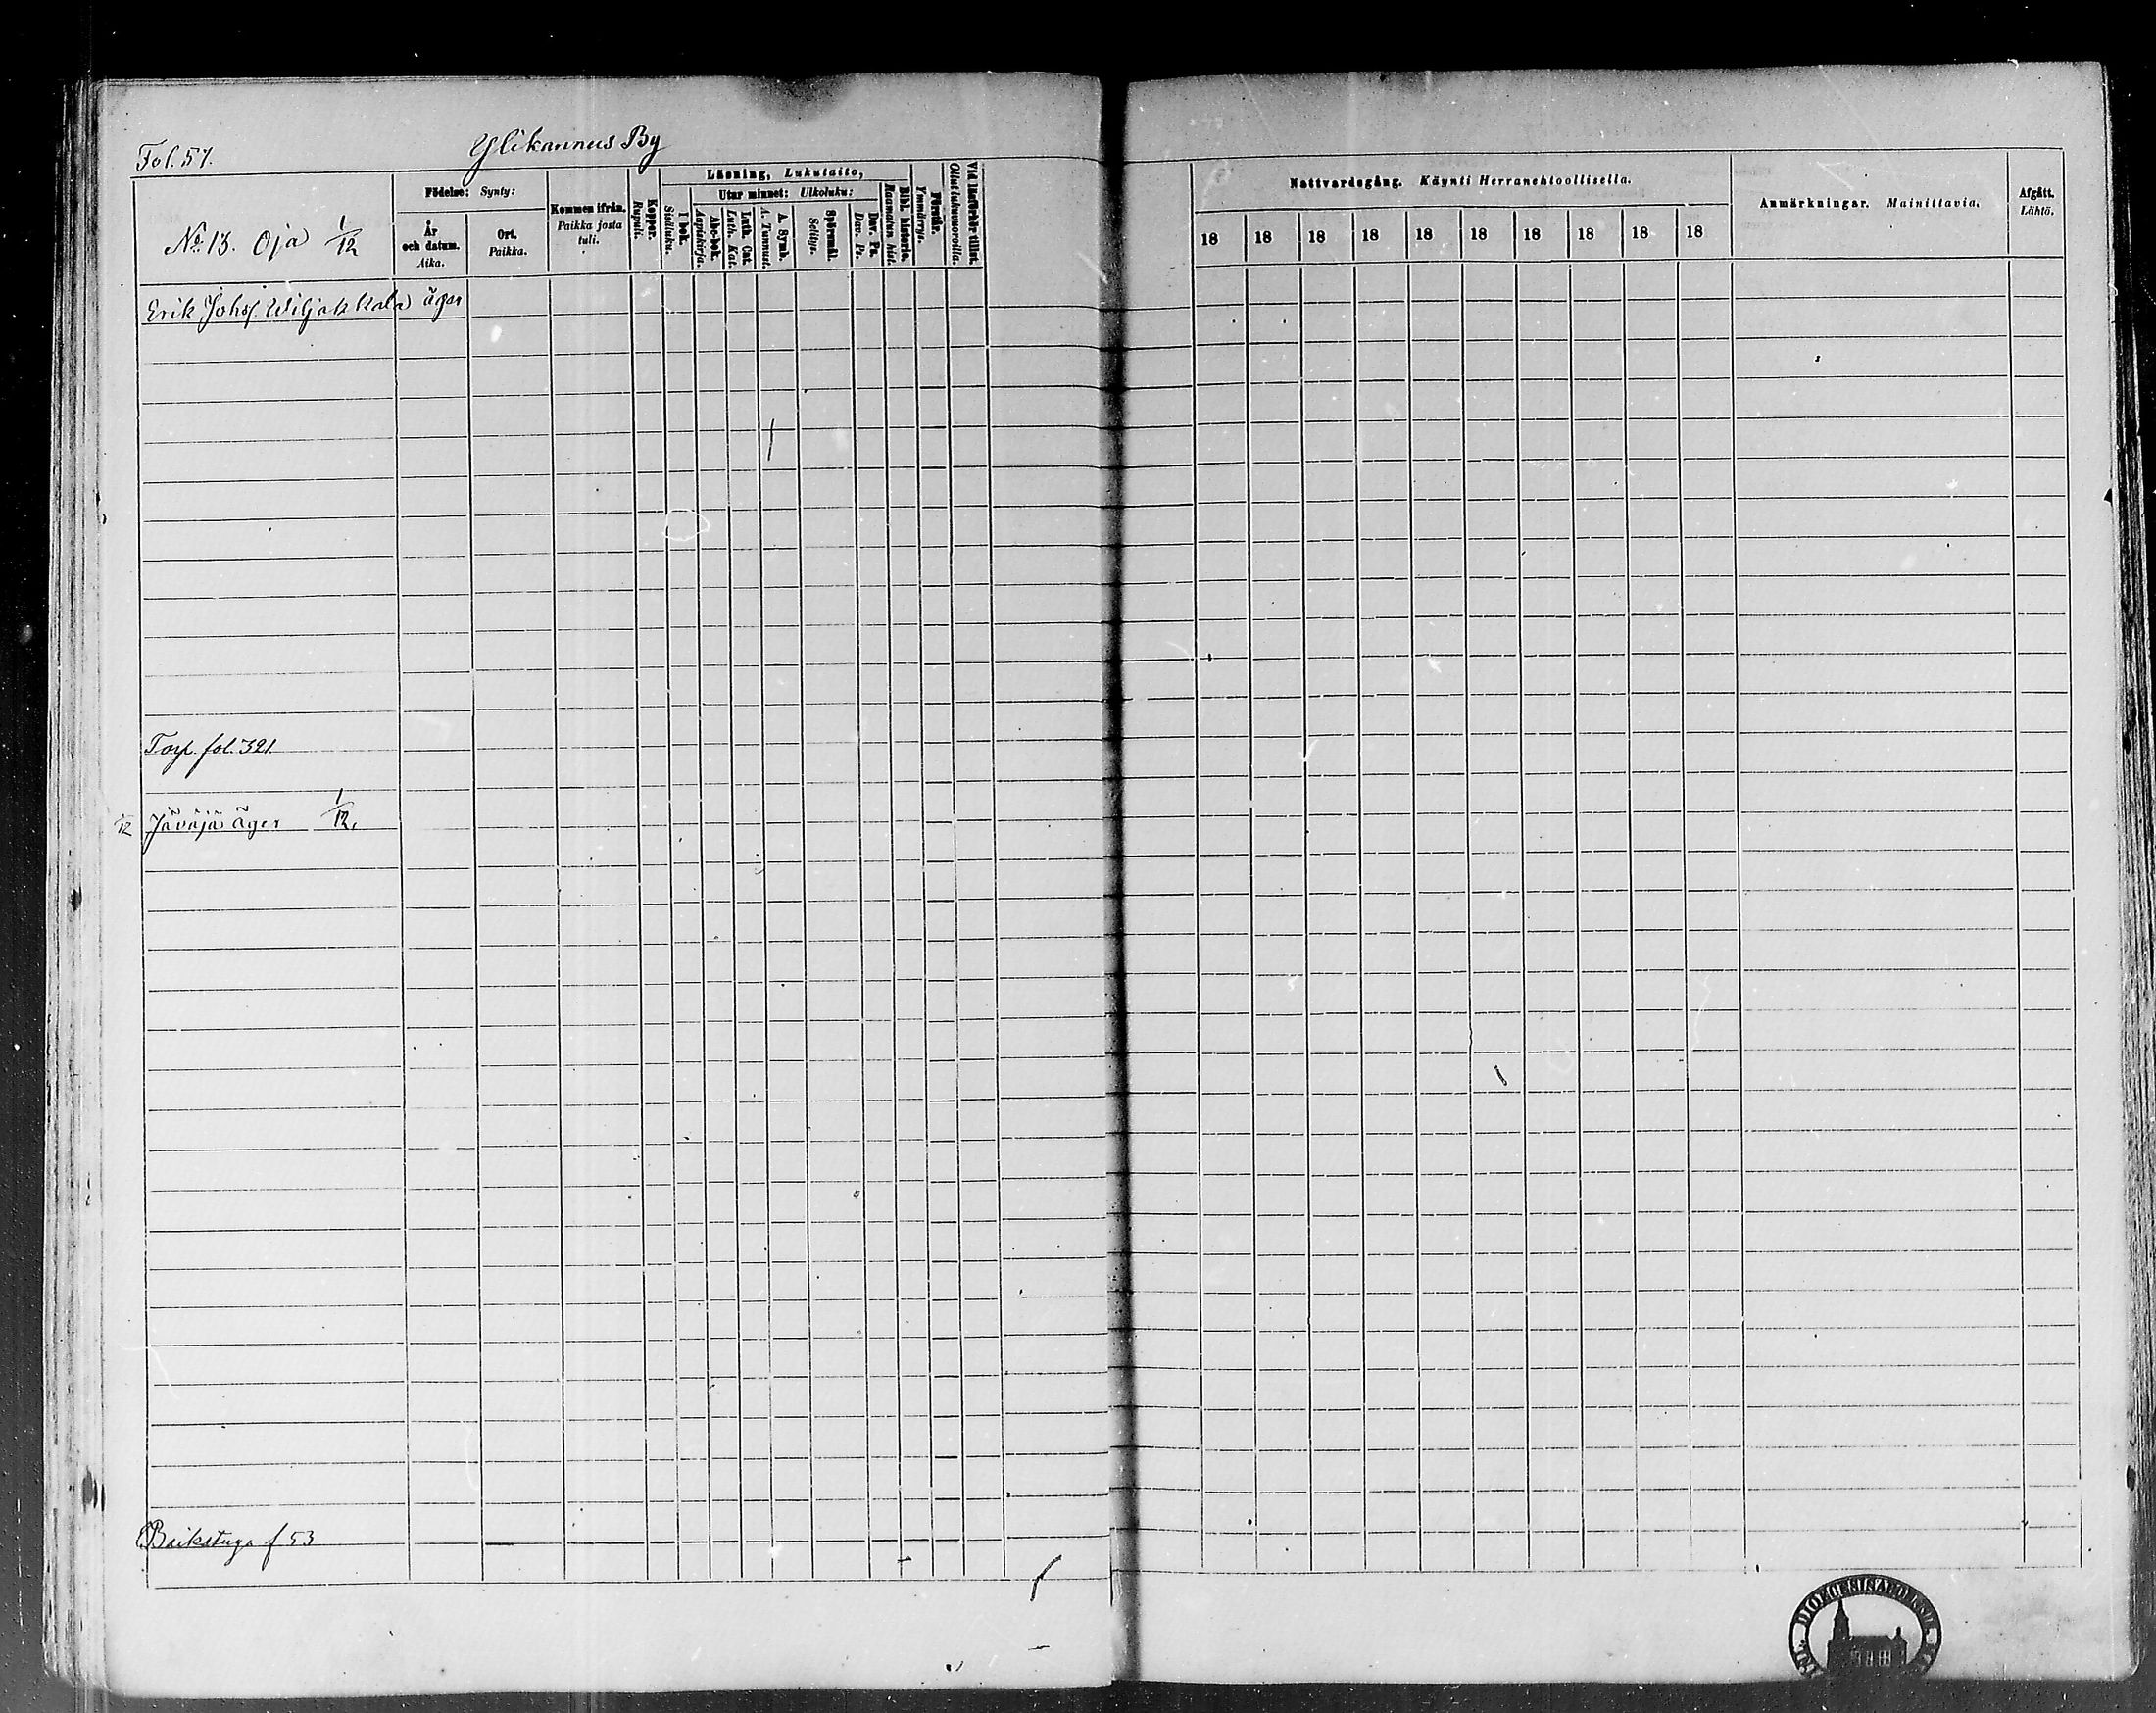 Fol. 57.
Ylikannus By
No 13. Oja 1/12
Födelse: Synty:
År och datum. Aika.
Ort. Paikka.
Kommen ifrån. Paikka josta tuli.
Koppor. Rupuli.
Läsning, Lukutaito,
I bok. Sisäluku.
Utur minnet: Ulkoluku:
Abc-bok. Aapiskirja.
Luth. Cat. Luth. Kat.
A. Symb. A. Tunnust.
Spörsmål. Selitys.
Dav. Ps. Dav. Ps.
Bibl. historia. Raamatun hist.
Förstår. Ymmärrys.
Vid läsförhör tillst. Ollut lukuvuoroilla.
Nattvardsgång. Käynti Herranehtoollisella.
18 18 18 18 18 18 18 18 18 18
Anmärkningar. Mainittavia.
Afgått. Lähtö.
Erik Johsf. Wiljakkala äger
Torp. fol. 321
1/12 Jäväjä äger 1/12.
Bakstuga f 53